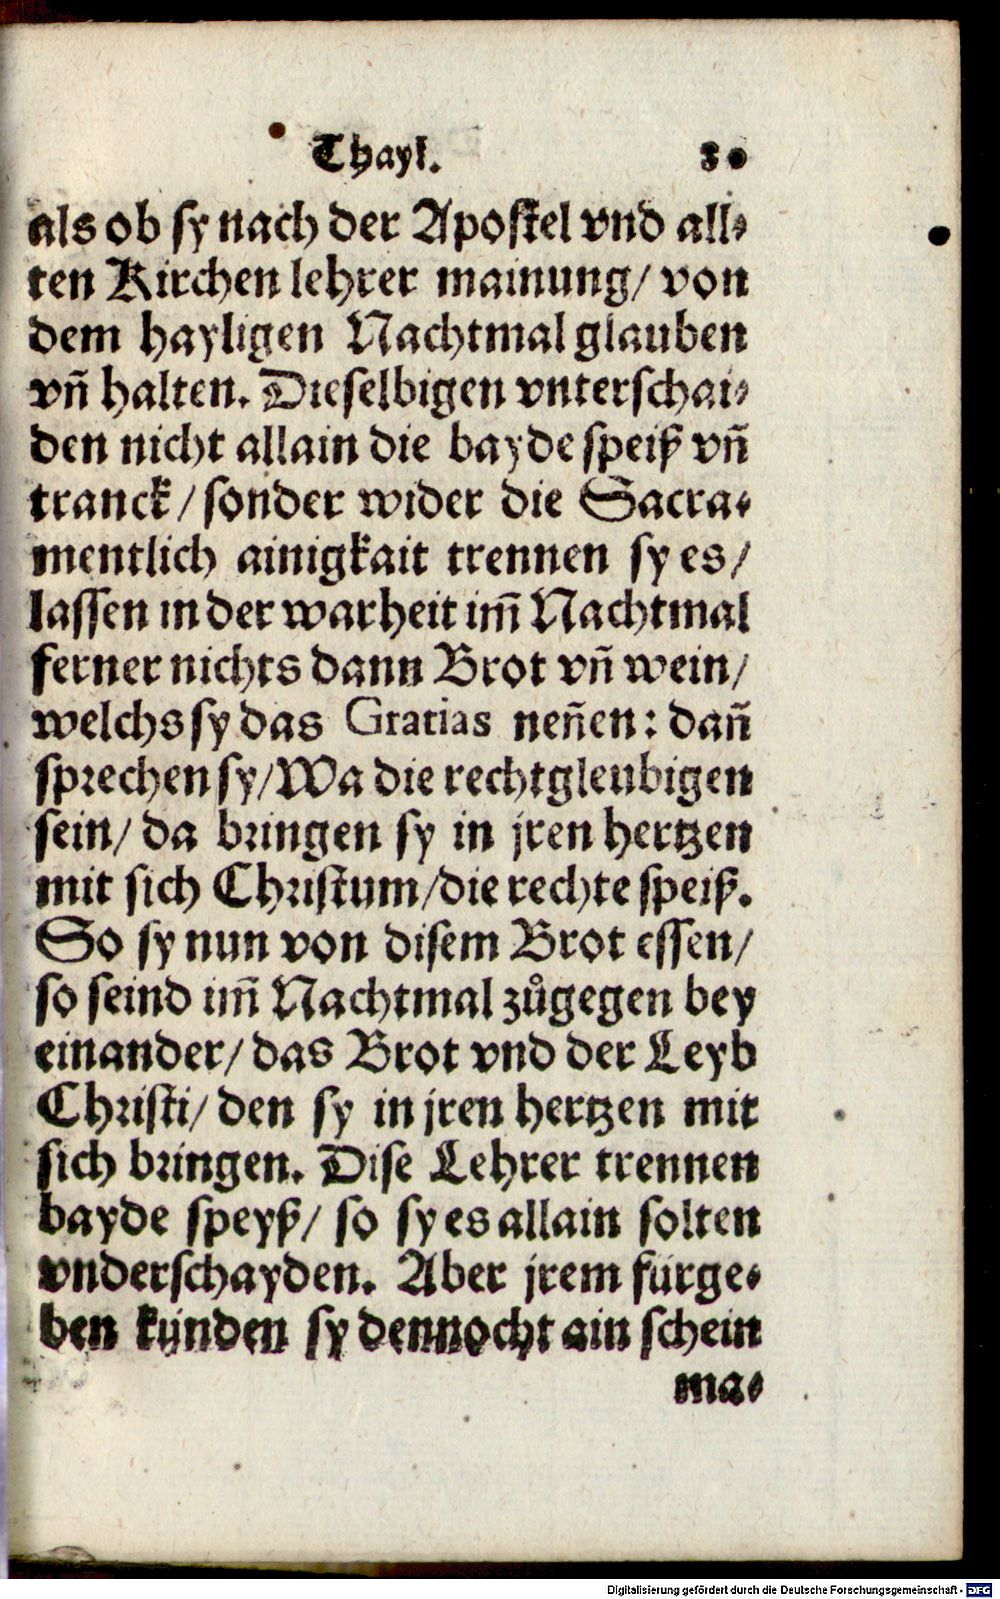 Thayl. 30
als ob sy nach der Apostel vnd all⸗
ten Kirchen lehrer mainung/ von
dem hayligen Nachtmal glauben
vñ halten. Dieselbigen vnterschai⸗
den nicht allain die bayde speiß vñ
tranck/ sonder wider die Sacra⸗
mentlich ainigkait trennen sy es/
lassen in der warheit im̃ Nachtmal
ferner nichts dann Brot vñ wein/
welchs sy das Gratias neñen: dañ
sprechen sy/ Wa die rechtgleubigen
sein/ da bringen sy in jren hertzen
mit sich Christum/ die rechte speiß.
So sy nun von disem Brot essen/
so seind im̃ Nachtmal zůgegen bey
einander/ das Brot vnd der Leyb
Christi/ den sy in jren hertzen mit
sich bringen. Dise Lehrer trennen
bayde speyß/ so sy es allain solten
vnderschayden. Aber jrem fürge⸗
ben künden sy dennocht ain schein
ma⸗
Digitalisierung gefördert durch die Deutsche Forschungsgemeinschaft - DFG